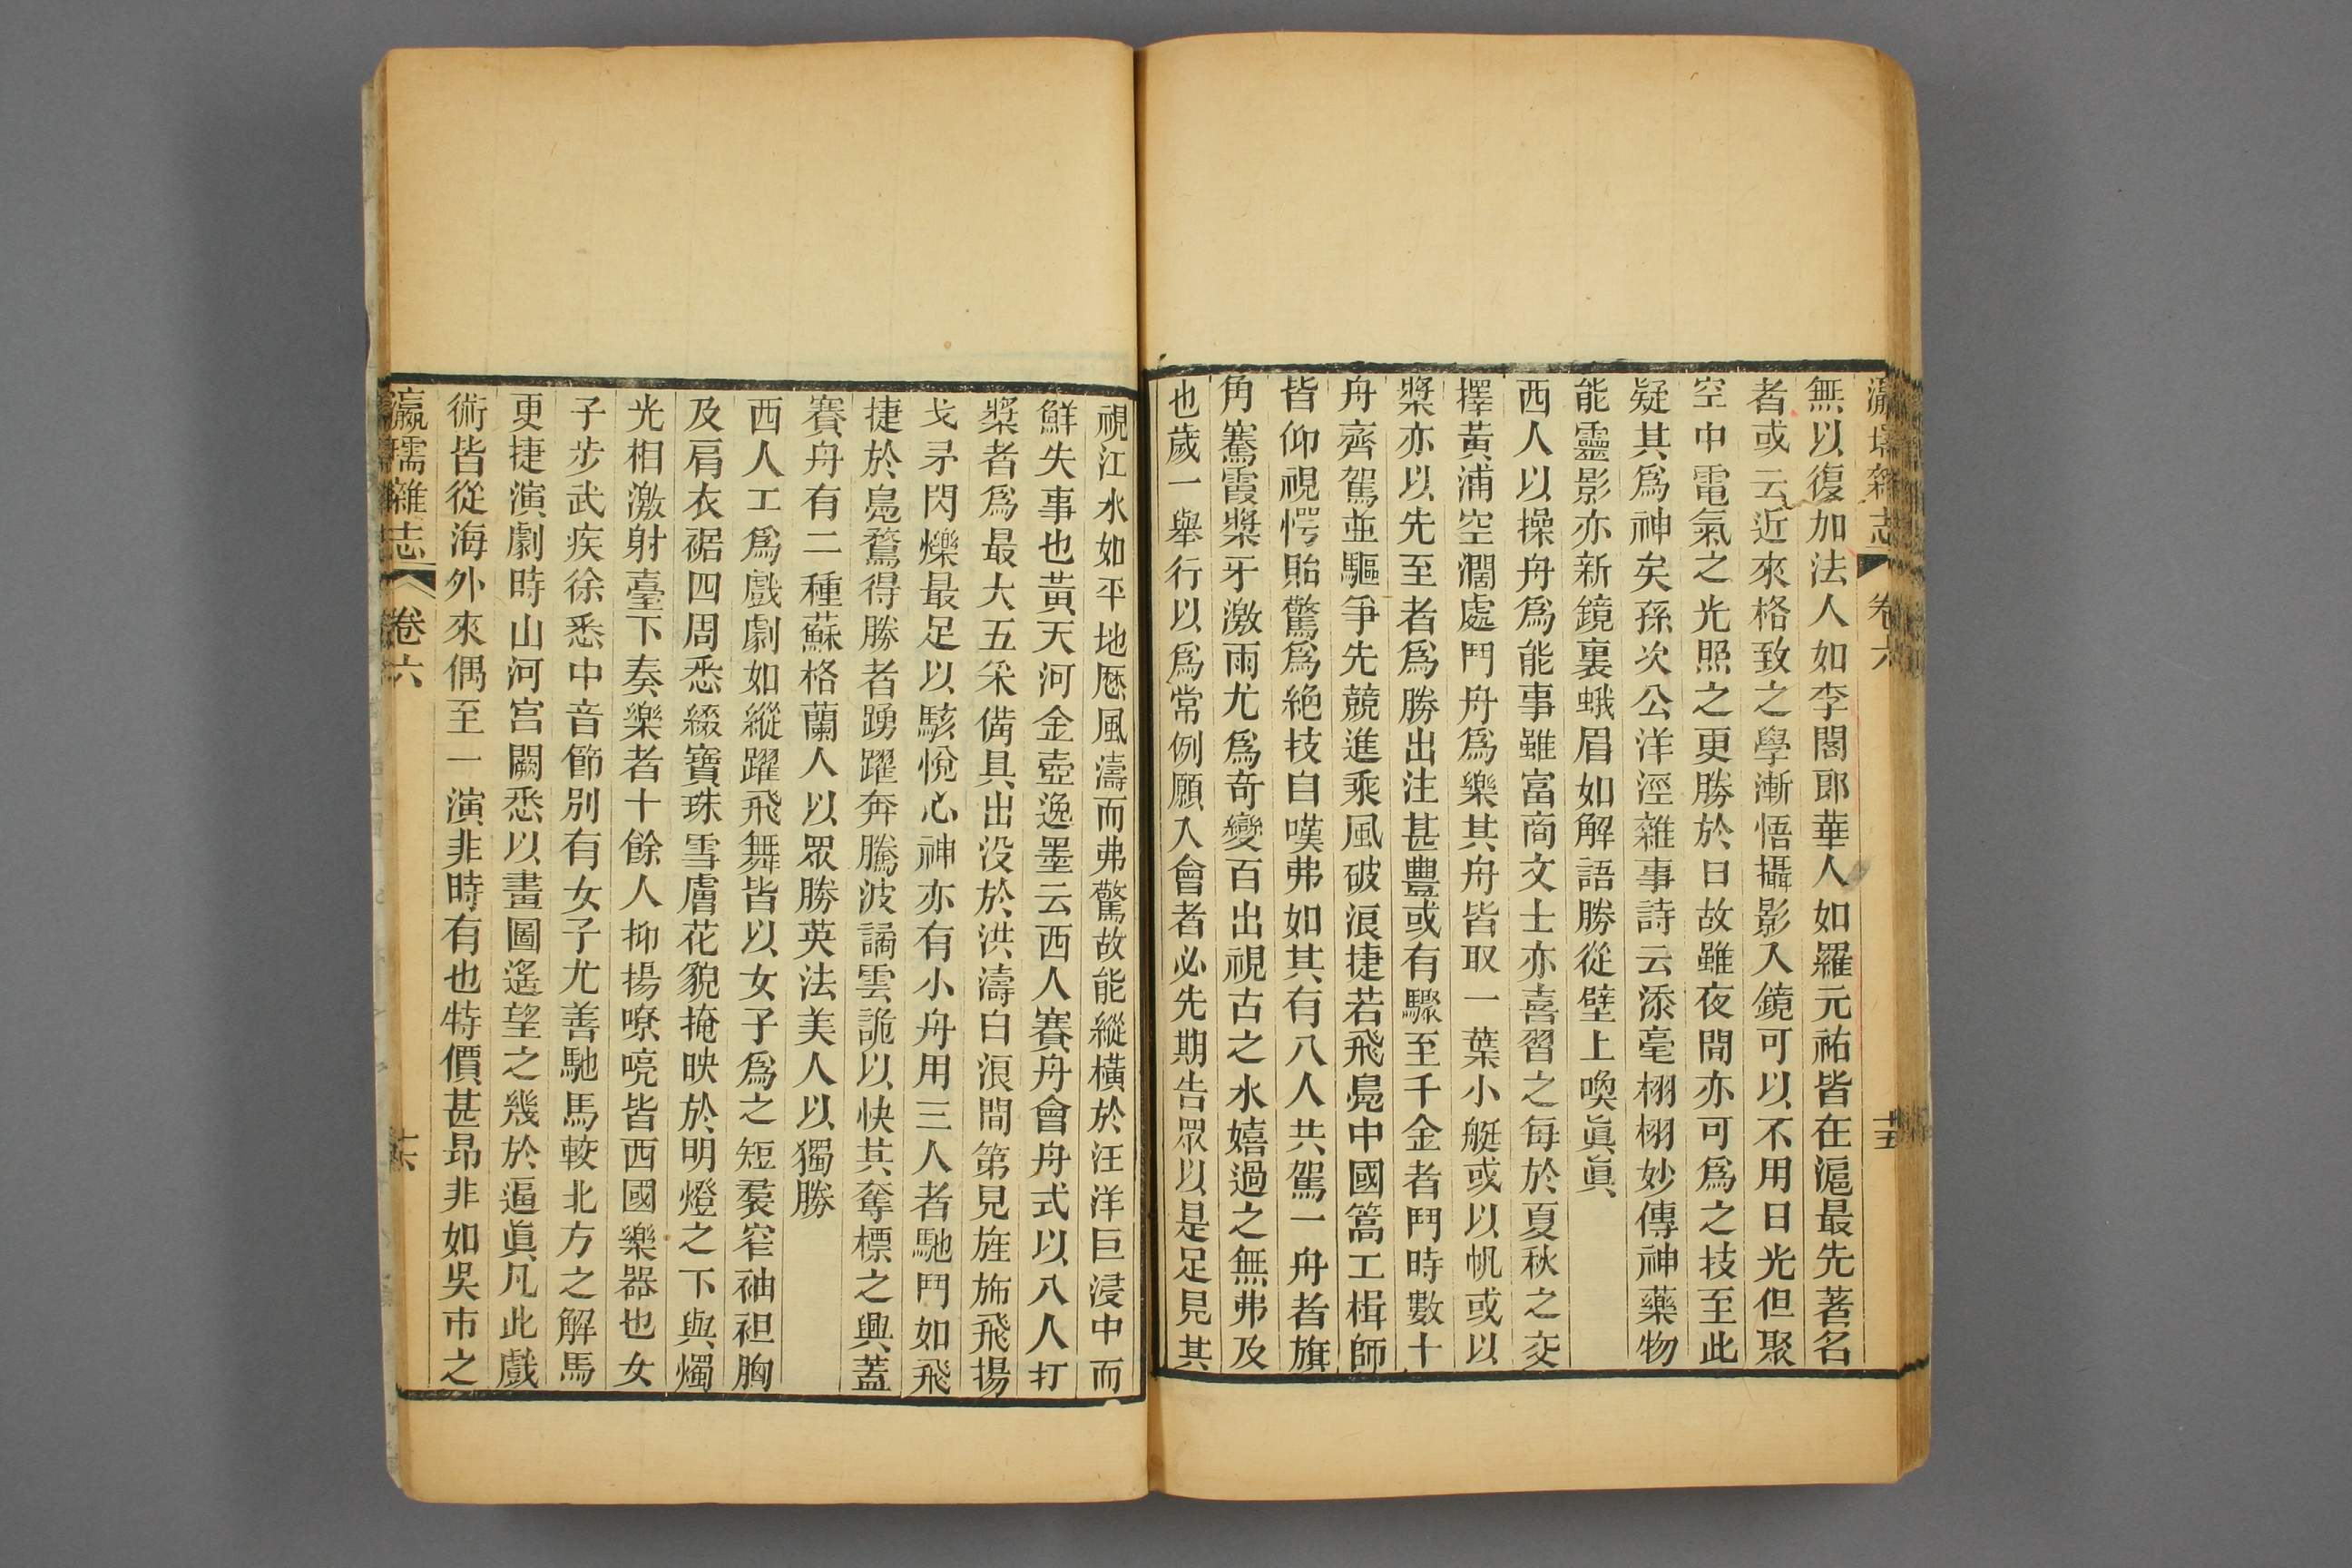 瀛壖雜志 卷六 十五
無以復加法人如李閣郎華人如羅元祐皆在滬最先著名
者或云近來格致之學漸悟攝影入鏡可以不用日光但聚
空中電氣之光照之更勝於日故雖夜間亦可爲之技至此
疑其爲神矣孫次公洋涇雜事詩云添毫栩栩妙傳神藥物
能靈影亦新鏡裏蛾眉如解語勝從壁上喚眞眞
西人以操舟爲能事雖富商文士亦喜習之每於夏秋之交
擇黃浦空濶處鬥舟爲樂其舟皆取一葉小艇或以帆或以
槳亦以先至者爲勝出注甚豐或有驟至千金者鬥時數十
舟齊駕並驅爭先競進乘風破浪捷若飛鳧中國篙工楫師
皆仰視愕貽驚爲絶技自嘆弗如其有八人共駕一舟者旗
角騫霞槳牙激雨尤爲奇變百出視古之水嬉過之無弗及
也歲一舉行以爲常例願入會者必先期告眾以是足見其
視江水如平地歷風濤而弗驚故能縱橫於汪洋巨浸中而
鮮失事也黃天河金壺逸墨云西人賽舟會舟式以八人打
槳者爲最大五采備具出没於洪濤白浪間第見旌斾飛揚
戈矛閃爍最足以駭悅心神亦有小舟用三人者馳鬥如飛
捷於鳧鶩得勝者踴躍奔騰波譎雲詭以快其奪標之興蓋
賽舟有二種蘇格蘭人以眾勝英法美人以獨勝
西人工爲戲劇如縱躍飛舞皆以女子爲之短裙窄袖袒胸
及肩衣裾四周悉綴寶珠雪膚花貌掩映於明燈之下與燭
光相激射臺下奏樂者十餘人抑揚嘹喨皆西國樂器也女
子步武疾徐悉中音節別有女子尤善馳馬較北方之解馬
更捷演劇時山河宮闕悉以畫圖遙望之幾於逼眞凡此戲
術皆從海外來偶至一演非時有也特價甚昂非如吳市之
瀛壖雜志 卷六 十六